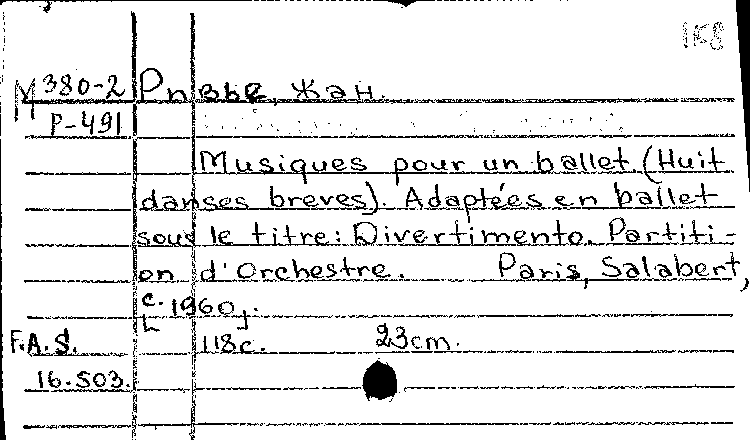 158
М 380-2 Ривье, Жан.
Р-491
Musiques pour un ballet (Huit
danses breves). Adaptées en ballet
sous le titre: Divertimento. Partiti-
on d'Orchestre. Paris, Salabert,
[c. 1960].
F.A.S. 118с. 23cm.
16.503.